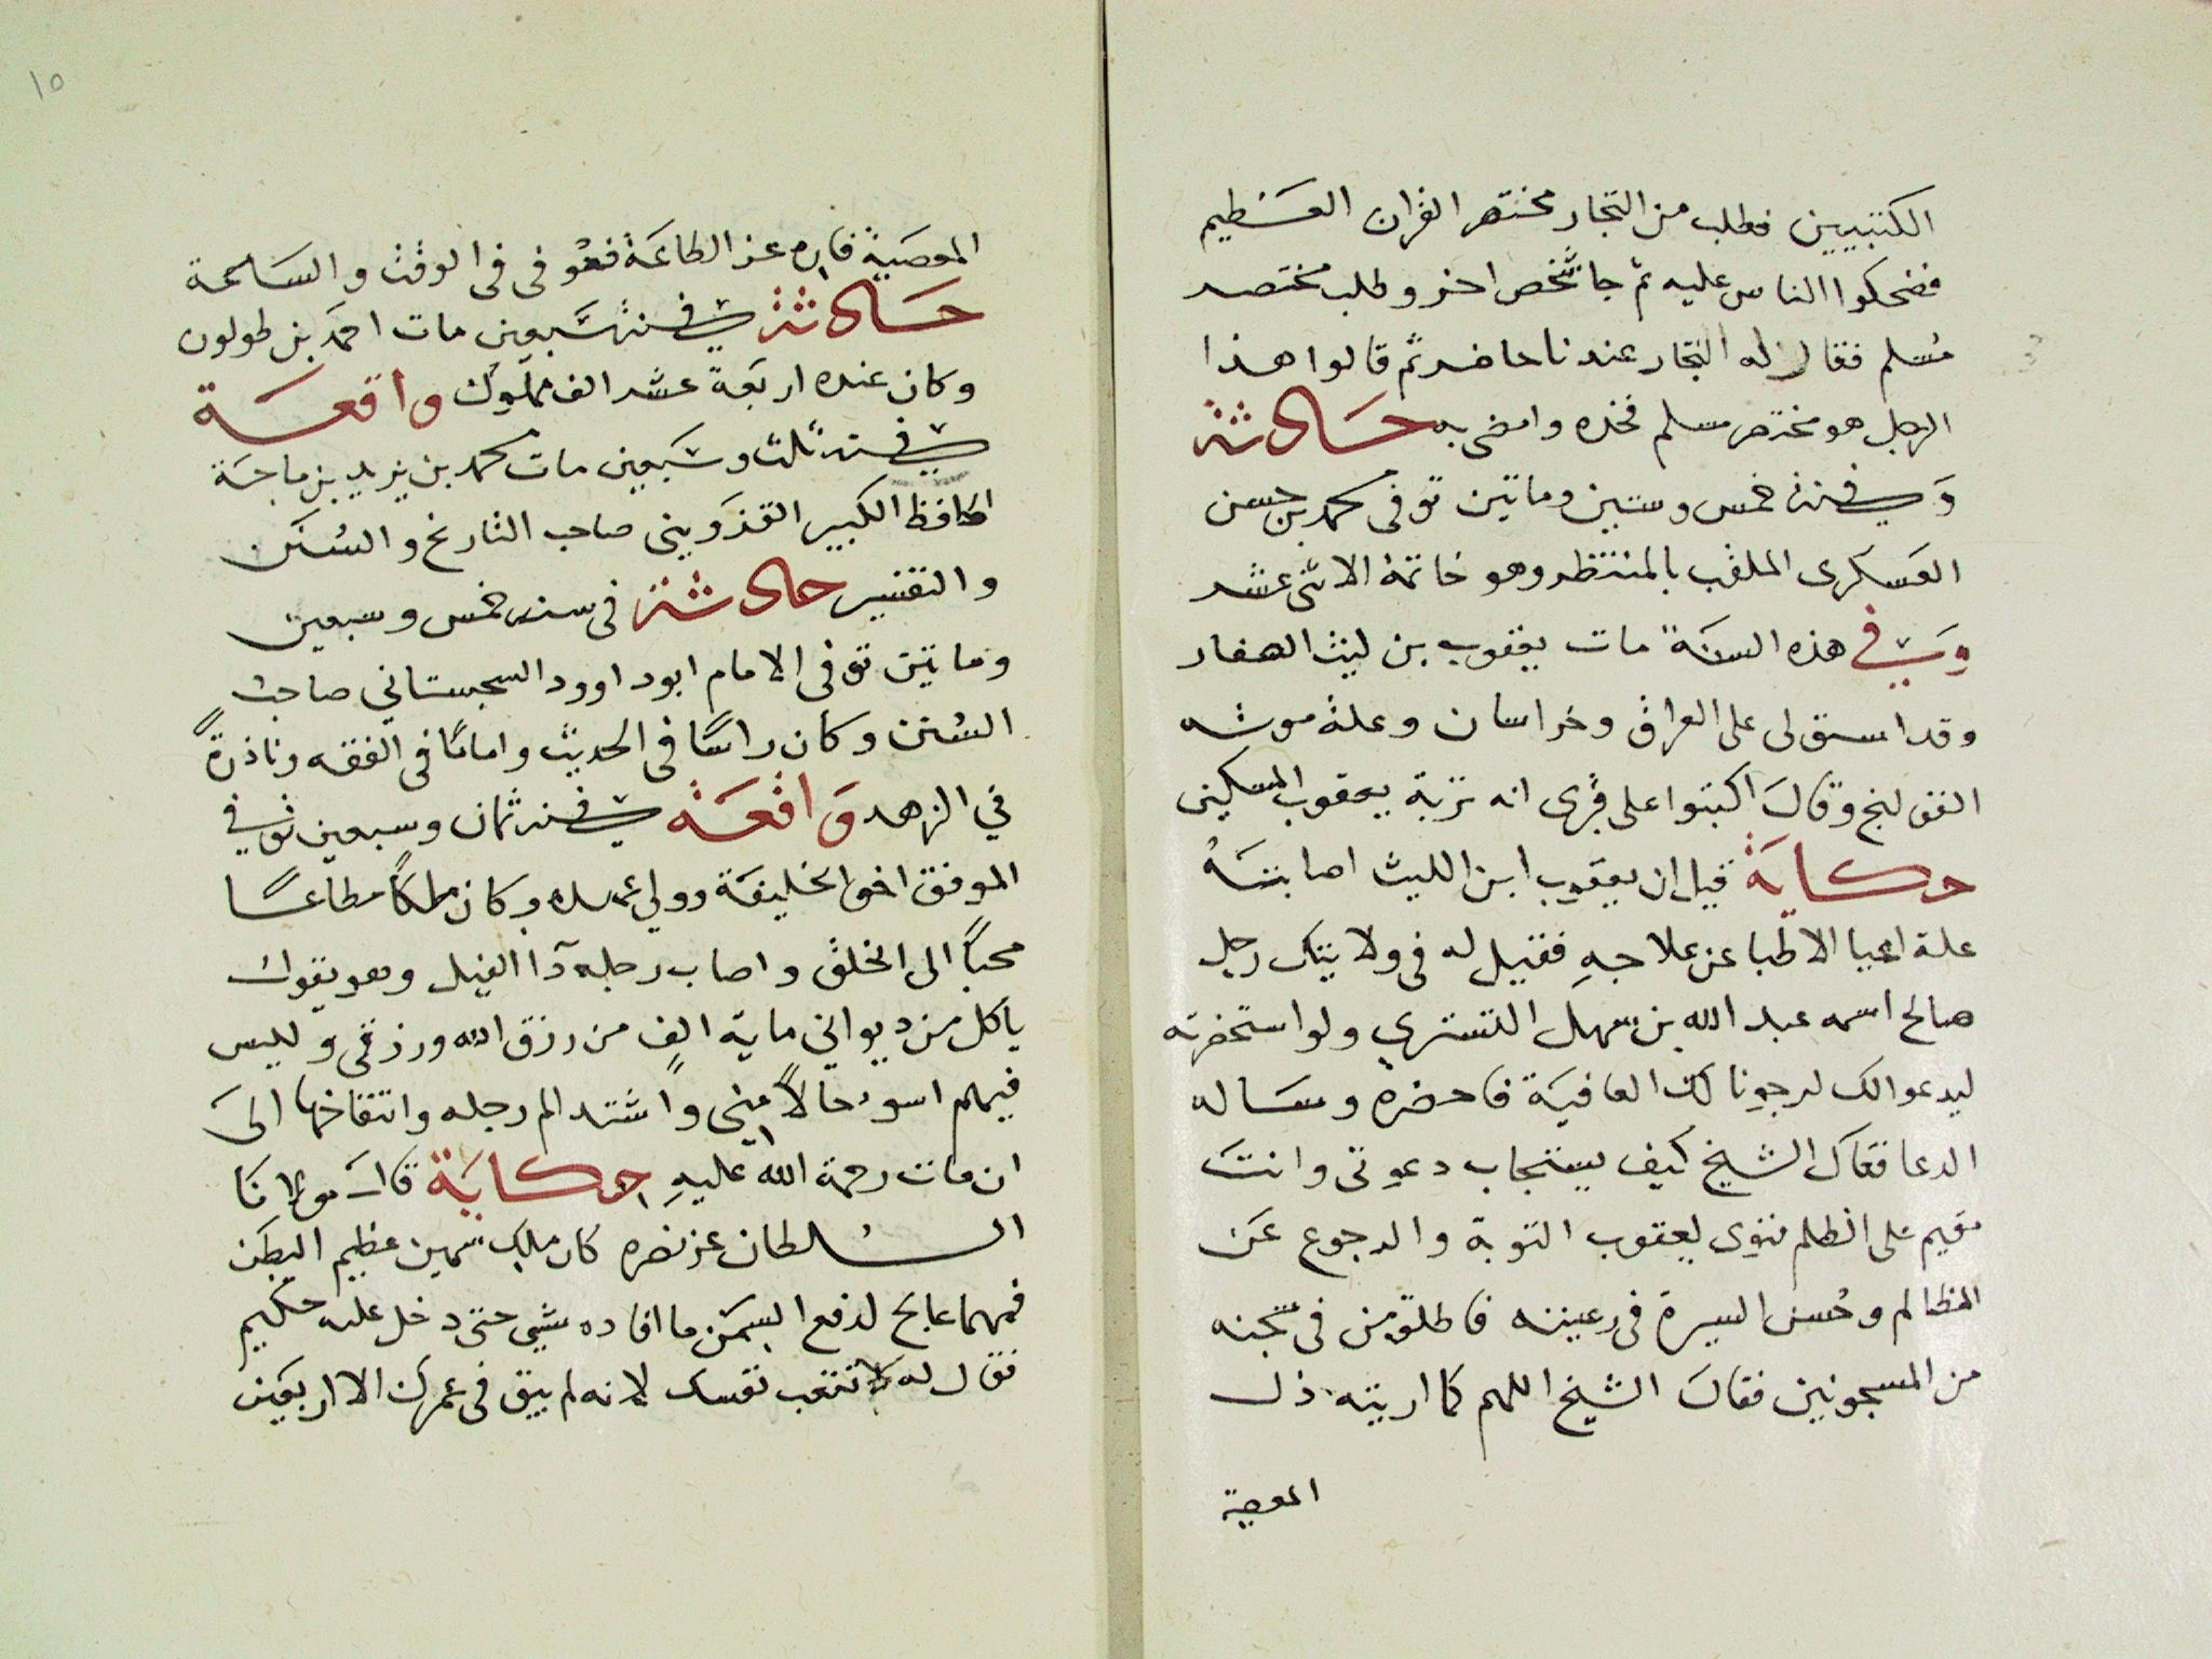 الكتبيين فطلب من التجار مختصر القران العظيم
فضحكوا الناس عليه ثم جا شخص اخر وطلب مختصر
مسلم فقال له التجار عندنا حاضر ثم قالوا هذا
الرجل هو مختصر مسلم فخذه وامضى به حادثة
وفي سنة خمس وستين وماتين توفى محمد بن حسن
العسكرى الملقب بالمنتظر وهو خاتمة الاثنى عشر
وفي هذه السنة مات يعقوب بن ليث الصفار
وقد استولى على العراق وخراسان وعلة موته
القولنج وقال اكتبوا على قبرى انه تربة يعقوب المسكين
حكاية قيل ان يعقوب ابن الليث اصابته
علة اعيا الاطبا عن علاجه فقيل له فى ولايتك رجل
صالح اسمه عبد الله بن سهل التسترى ولو استحضرته
ليدعوا لك لرجونا لك العافية فاحضره وساله
الدعا فقال الشيخ كيف يستجاب دعوتى وانت
مقيم على الظلم فنوى يعقوب التوبة والرجوع عن
المظالم وحسن السيرة فى رعيته فاطلق من فى سجنه
من المسجونين فقال الشيخ اللهم كما اريته ذل
المعصية
١٥
المعصية فاره عز الطاعة فعوفى فى الوقت والساعة
حادثة في سنة سبعين مات احمد بن طولون
وكان عنده اربعة عشر الف مملوك واقعة
في سنة ثلث وسبعين مات محمد بن يزيد بن ماجة
الحافظ الكبير القزوينى صاحب التاريخ والسنن
والتفسير حادثة فى سنة خمس وسبعين
وماتين توفى الامام ابو داوود السجستاني صاحب
السنن وكان راسًا فى الحديث وامامًا فى الفقه ونادرةً
في الزهد واقعة في سنة ثمان وسبعين توفي
الموفق اخو الخليفة وولي عهده وكان ملكًا مطاعًا
محبًا الى الخلق واصاب رجله دآ الفيل وهو يقول
ياكل من ديواني ماية الف من رزق الله ورزقى وليس
فيهم اسو حالاً منى واشتد الم رجله وانتفاخها الى
ان مات رحمة الله عليه حكاية قال مولانا
السلطان عز نصره كان ملك سمين عظيم البطن
فمهما عالج لدفع السمن ما افاده شي حتى دخل عليه حكيم
فقال له لا تتعب نفسك لانه لم يبق فى عمرك الا اربعين